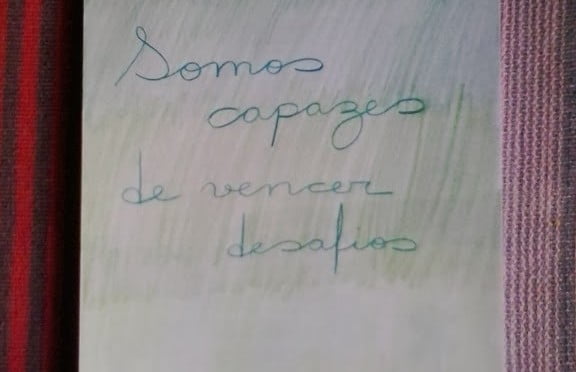 Somos
capazes
de vencer
desafios